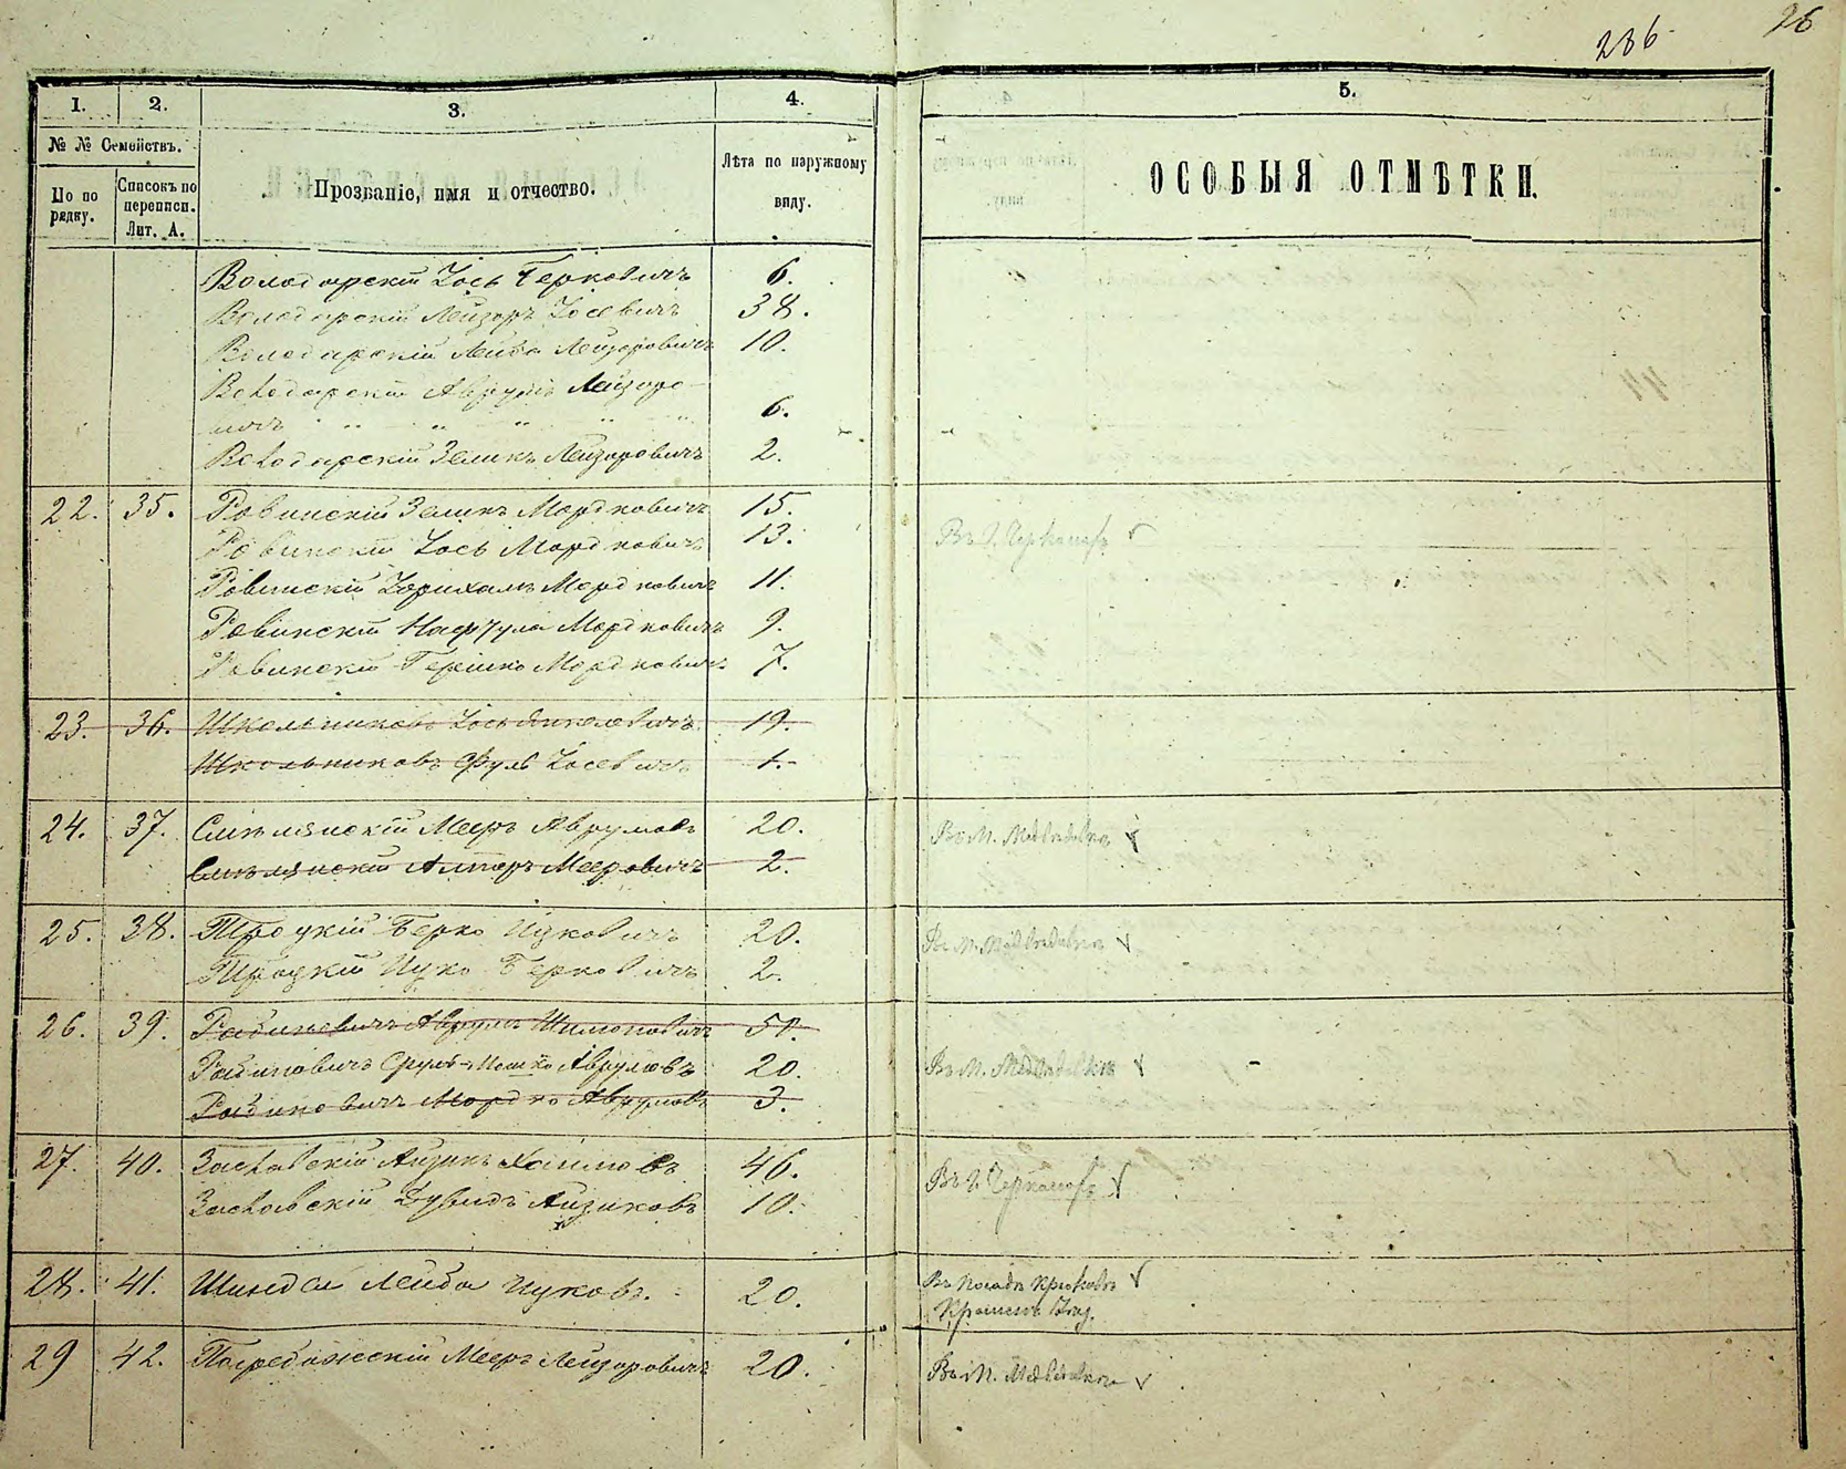 26
286.
1. 2. 3. 4. 5.
№ № Семействъ.
По по рядку.
Списокъ по переписи. Лит. А.
Прозваніе, имя и отчество.
Лѣта по наружному виду.
ОСОБЫЯ ОТМѢТКИ.
Володарскій Іось Берковичъ 6.
Володарскій Лейзоръ Іосевичъ 38.
Володарскій Лейба Лейзоровичъ 10.
Володарскій Аврумъ Лейзоро-
вичъ 6.
Володарскій Зеликъ Лейзоровичъ 2.
22. 35. Ровинскій Зеликъ Мордковичъ 15.
Ровинскій Іось Мордковичъ 13. Въ г. Черкассахъ
Ровинскій Мордковичъ 11.
Ровинскій Нафтула Мордковичъ 9.
Ровинскій Гершко Мордковичъ 7.
23. 36. Школьниковъ Іось Янкелевичъ 19.
Школьниковъ Іосевичъ 1.
24. 37. Смѣлянскій Мееръ Аврумовъ 20. Въ М. Медвѣдовкѣ
Смѣлянскій Алтеръ Мееровичъ 2.
25. 38. Троцкій Берко Ицковичъ 20. Въ М. Медвѣдовкѣ
Троцкій Ицко Берковичъ 2.
26. 39. Рабиновичъ Аврумъ Шимоновичъ 51.
Рабиновичъ Сруль-Мошко Аврумовъ 20. Въ М. Медвѣдовкѣ
Рабиновичъ Мордко Аврумовъ 3.
27. 40. Заславскій Айзикъ Хаимовъ 46. Въ г. Черкассахъ
Заславскій Дувидъ Айзиковъ 10.
28. 41. Шиндель Лейба Ицковъ. 20. Въ посадѣ Крюковѣ
29 42. Погребожскій Мееръ Лейзоровичъ 20. Въ М. Медвѣдовкѣ